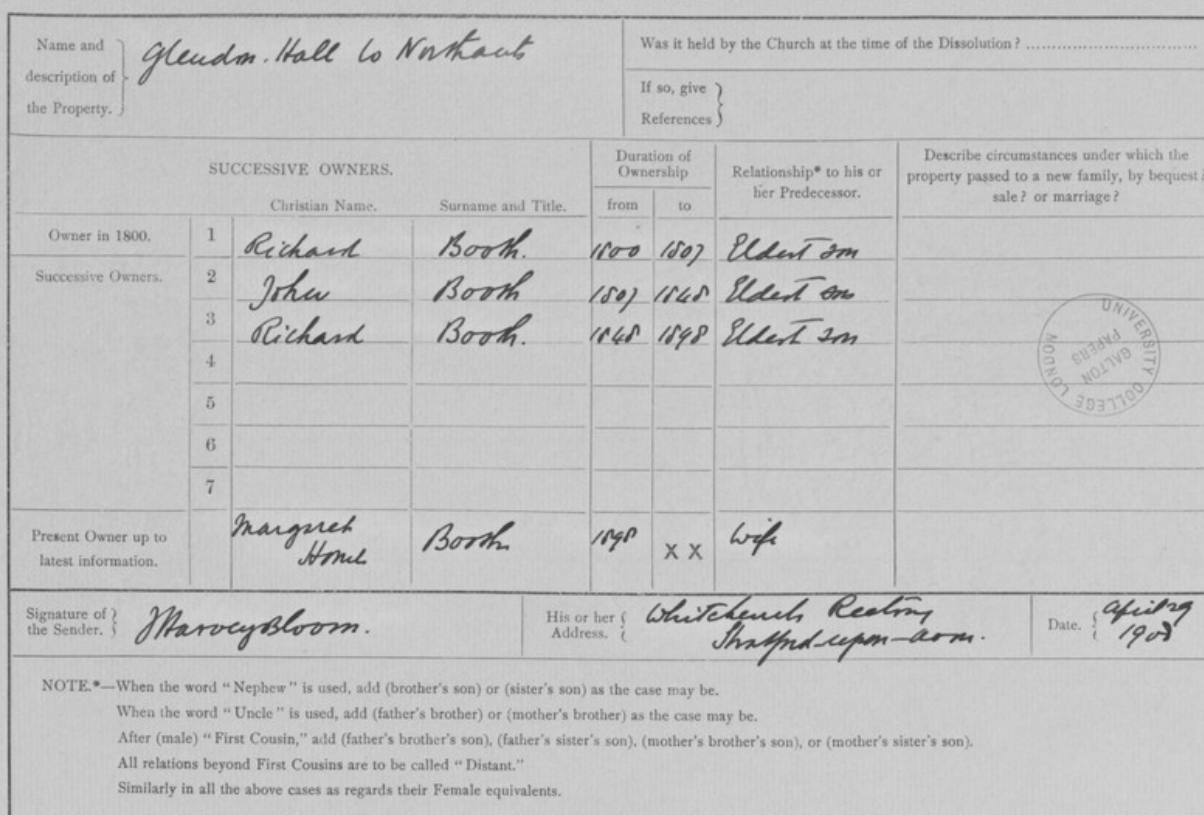 Name and description of the Property.
Glendon. Hall Co Northants
Was it held by the Church at the time of the Dissolution?
If so, give References
SUCCESSIVE OWNERS.
Christian Name. Surname and Title.
Duration of Ownership
from to
Relationship* to his or her Predecessor.
Describe circumstances under which the property passed to a new family, by bequest? sale? or marriage?
Owner in 1800. 1 Richard Booth. 1800 1807 Eldest son
Successive Owners. 2 John Booth 1807 1848 Eldest son
3 Richard Booth. 1848 1898 Eldest son
4
5
6
7
Present Owner up to latest information. Margaret Booth 1898 X X Wife
UNIVERSITY COLLEGE LONDON
GALTON
PAPERS
Signature of the Sender. J Harvey Bloom.
His or her Address. Whitchurch Rectory
Stratford-upon-avon.
Date. April 29
NOTE.*—When the word "Nephew" is used, add (brother's son) or (sister's son) as the case may be.
When the word "Uncle" is used, add (father's brother) or (mother's brother) as the case may be.
After (male) "First Cousin," add (father's brother's son), (father's sister's son), (mother's brother's son), or (mother's sister's son).
All relations beyond First Cousins are to be called "Distant."
Similarly in all the above cases as regards their Female equivalents.